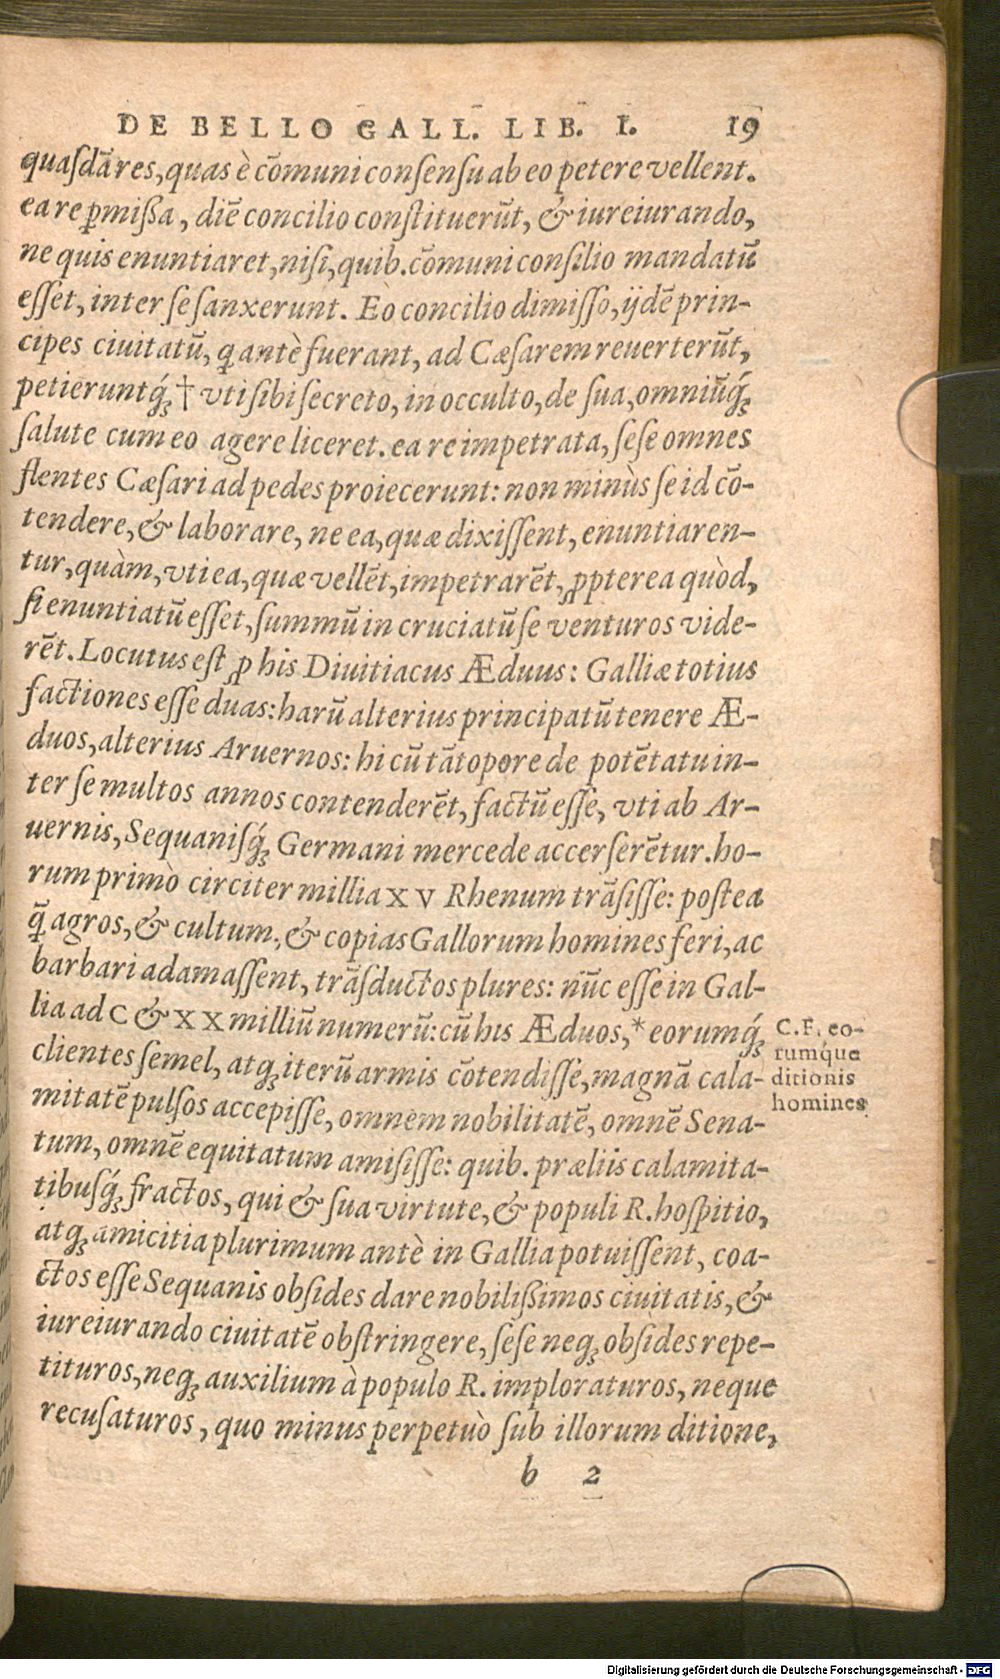 DE BELLO GALL. LIB. I. 19
quaſdā res, quas è cōmuni conſenſu ab eo petere vellent.
ea re ꝑmiſſa, diē concilio conſtituerūt, & iureiurando,
ne quis enuntiaret, niſi, quib. cōmuni conſilio mandatū
eſſet, inter ſe ſanxerunt. Eo concilio dimiſſo, ijdē prin-
cipes ciuitatū, q̄ antè fuerant, ad Cæſarem reuerterūt,
petieruntq́ꝫ † vti ſibi ſecreto, in occulto, de ſua, omniūq́ꝫ
ſalute cum eo agere liceret. ea re impetrata, ſeſe omnes
flentes Cæſari ad pedes proiecerunt: non minùs ſe id cō-
tendere, & laborare, ne ea, quæ dixiſſent, enuntiaren-
tur, quàm, vti ea, quæ vellēt, impetrarēt, ꝓpterea quòd,
ſi enuntiatū eſſet, ſummū in cruciatū ſe venturos vide-
rēt. Locutus eſt ꝓ his Diuitiacus Æduus: Galliæ totius
factiones eſſe duas: harū alterius principatū tenere Æ-
duos, alterius Aruernos: hi cū tātopore de potētatu in-
ter ſe multos annos contenderēt, factū eſſe, vti ab Ar-
uernis, Sequaniſq́ꝫ Germani mercede accerſerētur. ho-
rum primò circiter millia XV Rhenum trāſiſſe: poſtea
q̄ agros, & cultum, & copias Gallorum homines feri, ac
barbari adamaſſent, trāſductos plures: nūc eſſe in Gal-
lia ad C & XX milliū numerū: cū his Æduos, * eorumq́ꝫ
clientes ſemel, atqꝫ iterū armis cōtendiſſe, magnā cala-
mitatē pulſos accepiſſe, omnem nobilitatē, omnē Sena-
tum, omnē equitatum amiſiſſe: quib. præliis calamita-
tibuſq́ꝫ fractos, qui & ſua virtute, & populi R. hoſpitio,
atqꝫ amicitia plurimum antè in Gallia potuiſſent, coa-
ctos eſſe Sequanis obſides dare nobiliſſimos ciuitatis, &
iureiurando ciuitatē obſtringere, ſeſe neqꝫ obſides repe-
tituros, neqꝫ auxilium à populo R. imploraturos, neque
recuſaturos, quo minus perpetuò ſub illorum ditione,
C.F. eo-
rumq́ue
ditionis
homines
b 2
Digitalisierung gefördert durch die Deutsche Forschungsgemeinschaft - DFG